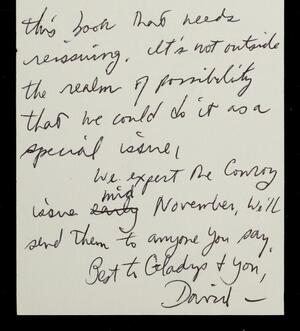 this book that needs
reissuing. It's not outside
the realm of possibility
that we could do it as a
special issue,
We expect the Conroy
mid
issue early November, Will
send them to anyone you say.
Best to Gladys + you,
David —